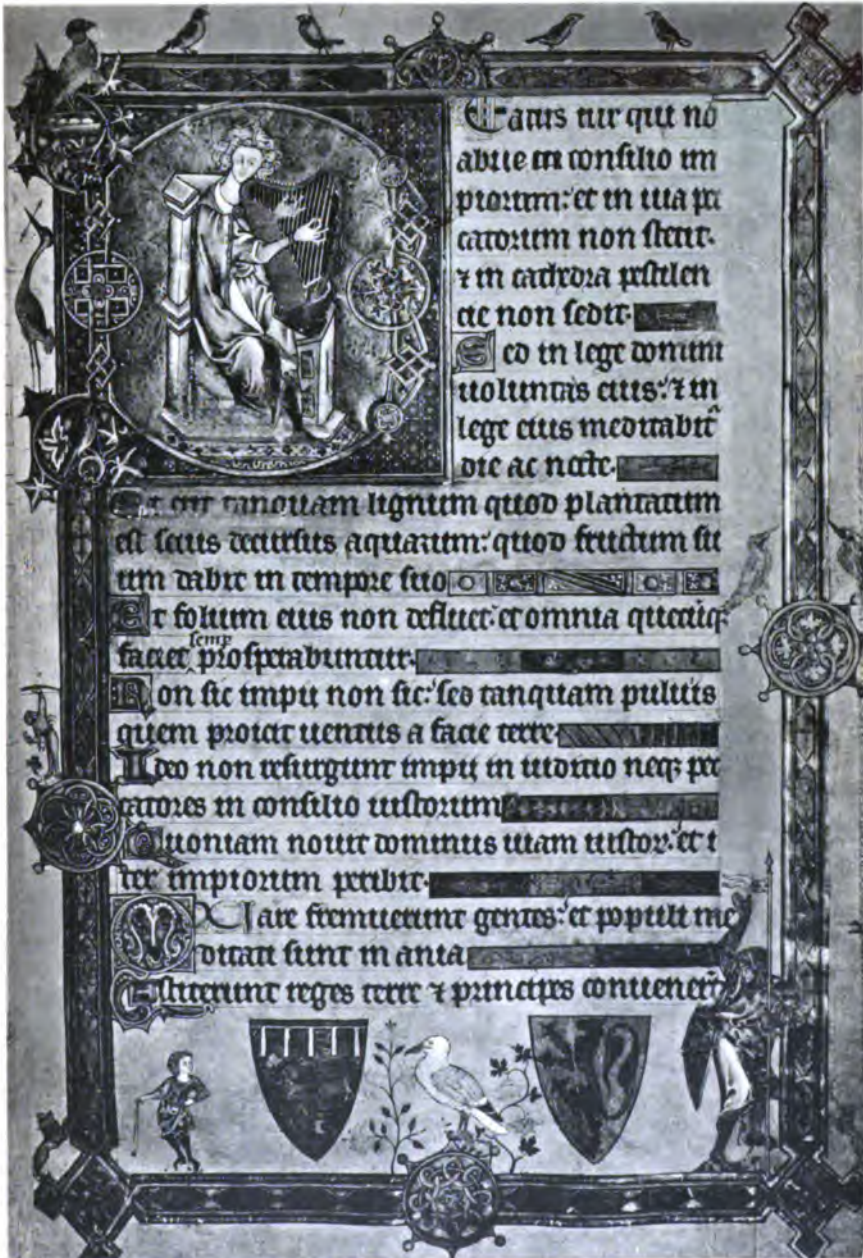 Eatus uir qui nō
abiit in consilio im
piorum: et in uia pec
catorum non stetit·
⁊ in cathedra pestilen
cie non sedit·
Sed in lege domini
uoluntas eius: ⁊ in
lege eius meditabit᷑
die ac nocte·
Et erit tanquam lignum quod plantatum
est secus decursus aquarum: quod fructum su
um dabit in tempore suo
Et folium eius non defluet: et omnia quecūq;
faciet semp̱ prosperabuntur·
Non sic impii non sic: sed tanquam puluis
quem proicit uentus a facie terre·
Ideo non resurgunt impii in iudicio neq; pec
catores in consilio iustorum
Quoniam nouit dominus uiam iustoꝝ: et i
ter impiorum peribit·
Quare fremuerunt gentes: et populi me
ditati sunt inania
Astiterunt reges terre ⁊ principes conuener̄